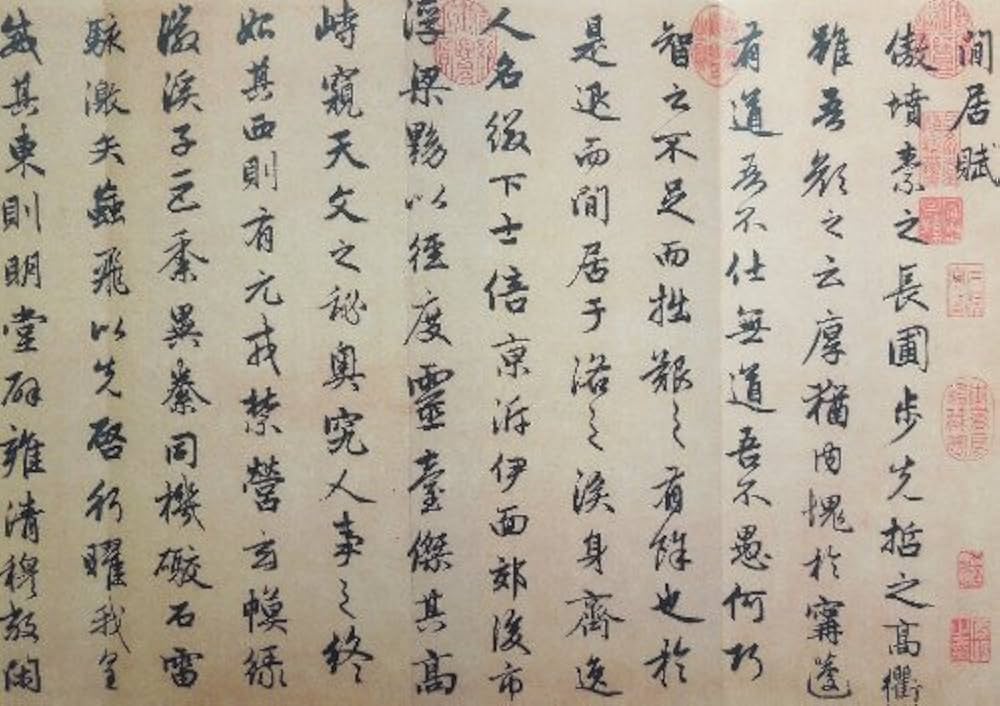 閒居賦
傲墳素之長圃步先哲之高衢
雖吾顏之云厚猶內愧於寗蘧
有道吾不仕無道吾不愚何巧
智之不足而拙艱之有餘也於
是退而閒居于洛之涘身齊逸
人名綴下士倍京泝伊面郊後市
浮梁黝以徑度靈臺傑其高
峙窺天文之秘奧究人事之終
始其西則有元戎禁營玄幙綠
徽溪子巨黍異絭同機礮石雷
駭激矢蝱飛以先啓行曜我皇
威其東則明堂辟雍清穆敞閑